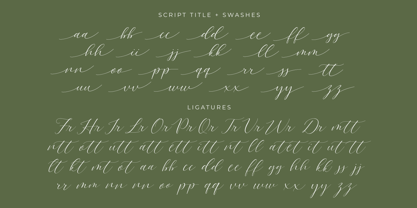 SCRIPT TITLE + SWASHES
aa bb cc dd ee ff gg
hh ii jj kk ll mm
nn oo pp qq rr ss tt
uu vv ww xx yy zz
LIGATURES
Fr Hr Ir Lr Or Pr Qr Tr Vr Ur Wr Dr mtt
ntt ott utt att ett itt rt ll atet it ut tt
lt kt mt ot aa bb cc dd ee ff gg hh kk ss jj
rr mm nn vv oo pp qq ww xx yy zz